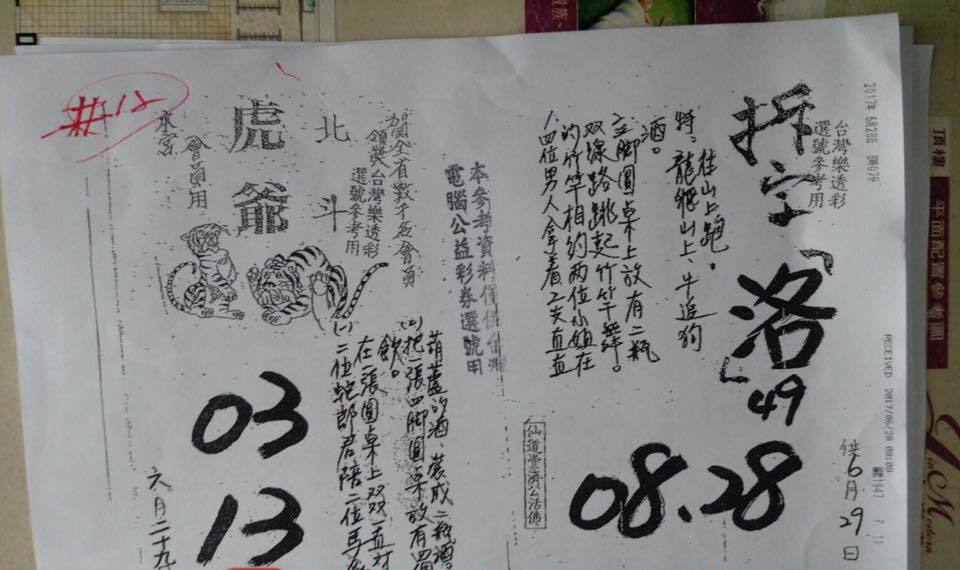 2017年 6月28日 8時07分
RECEIVED 2017/06/28 08:08
台灣樂透彩
選號參考用
拆字「洛」
49
供6月29日
往山上跑。
特。龍飛山上、牛追狗
酒。
三脚圓桌上放有二瓶
双線路跳起竹竿舞。
的竹竿相約兩位小姐在
四位男人拿着工夫直直
08.28
仙道堂濟公活佛
本參考資料僅供台灣
電腦公益彩券選號用
賀全省數千名會員
領獎台灣樂透彩
選號參考用
北斗
虎爺
會員用
#12
葫蘆的酒、裝成二瓶酒
(2)把一張四脚圓桌放有
飲。
在一張圓桌上双双一直対
(一)二位蛇郎君陪二位馬
03
13
六月二十九
頂樓
平面配置參考圖
Modern